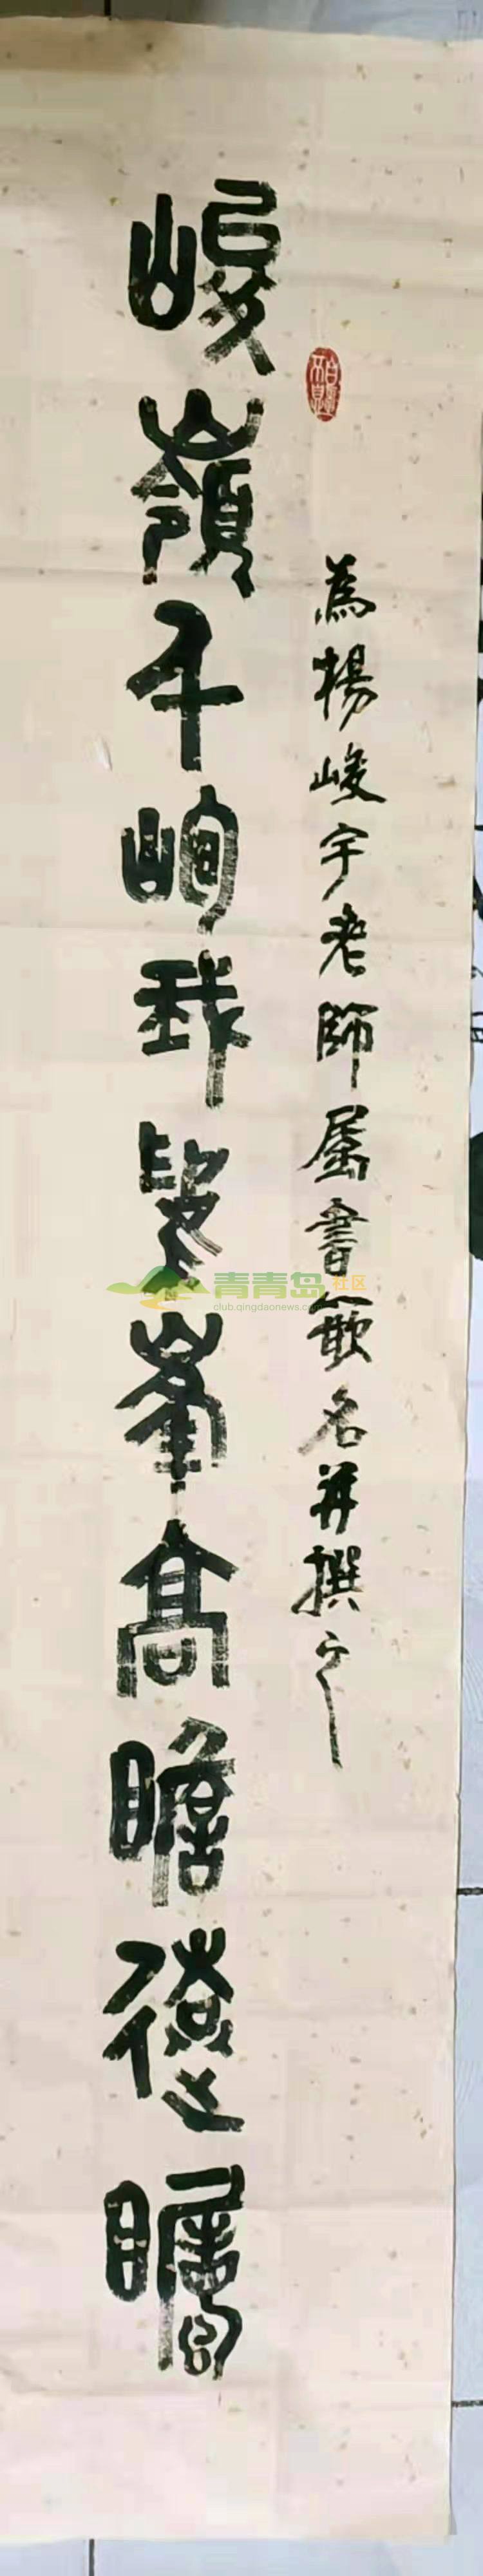 為楊峻宇老師屬書嵌名并撰之
峻嶺千峋我望峯高瞻遠矚
青青岛社区
club.qingdaonews.com